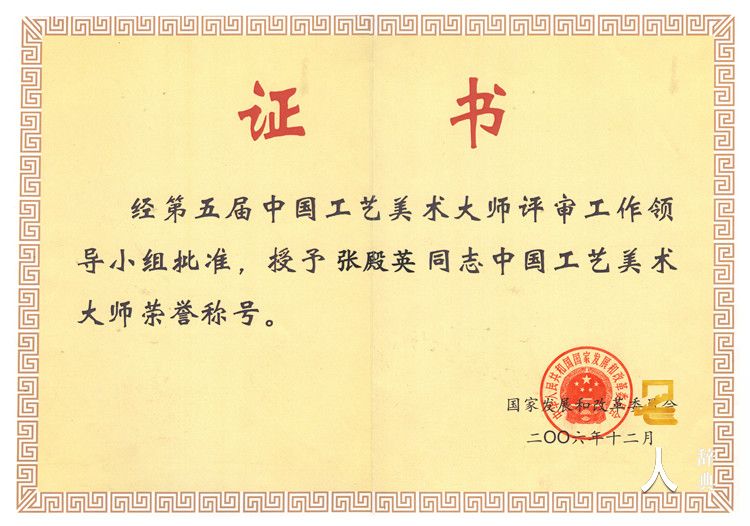 证书
经第五届中国工艺美术大师评审工作领
导小组批准，授予张殿英同志中国工艺美术
大师荣誉称号。
中华人民共和国国家发展和改革委员会
国家发展和改革委员会
二〇〇六年十二月
名
人
辞典